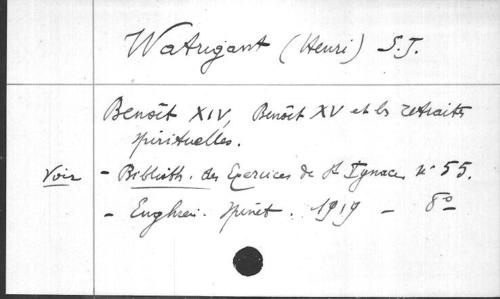 Watrigant (Henri) S.J.
Benoît XIV, Benoît XV et les retraites
spirituelles.
Voir - Biblioth. des Exercices de St Ignace n° 55.
- Enghien. Spinet. 1919 - 8°